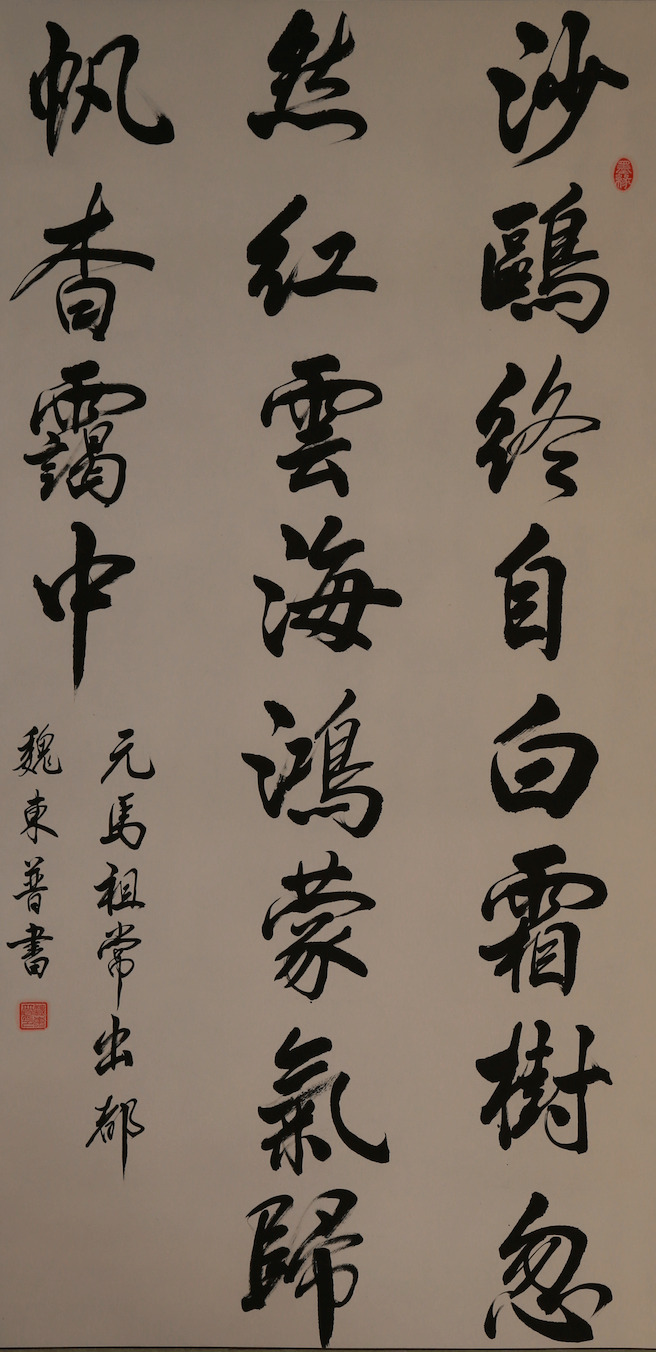 沙鷗終自白霜樹忽
然紅雲海鴻蒙氣歸
帆杳靄中
元馬祖常出都
魏東普書